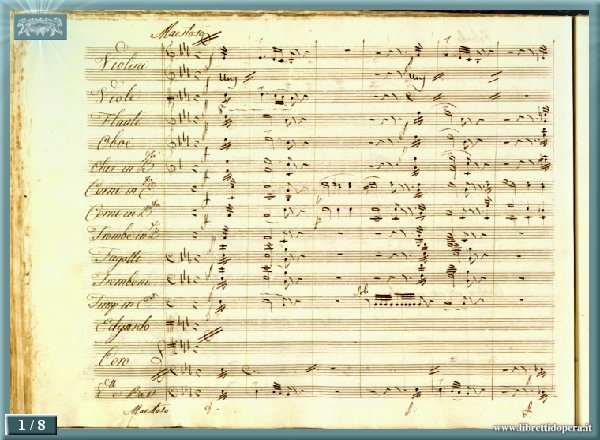 Maestoso
Violini
Viole
Flauti
Oboe
Clar in
Corni in
Corni in
Trombe in
Fagotti
Tromboni
Timp in
Edgardo
Coro
Maestoso
1 / 8
www.librettidopera.it